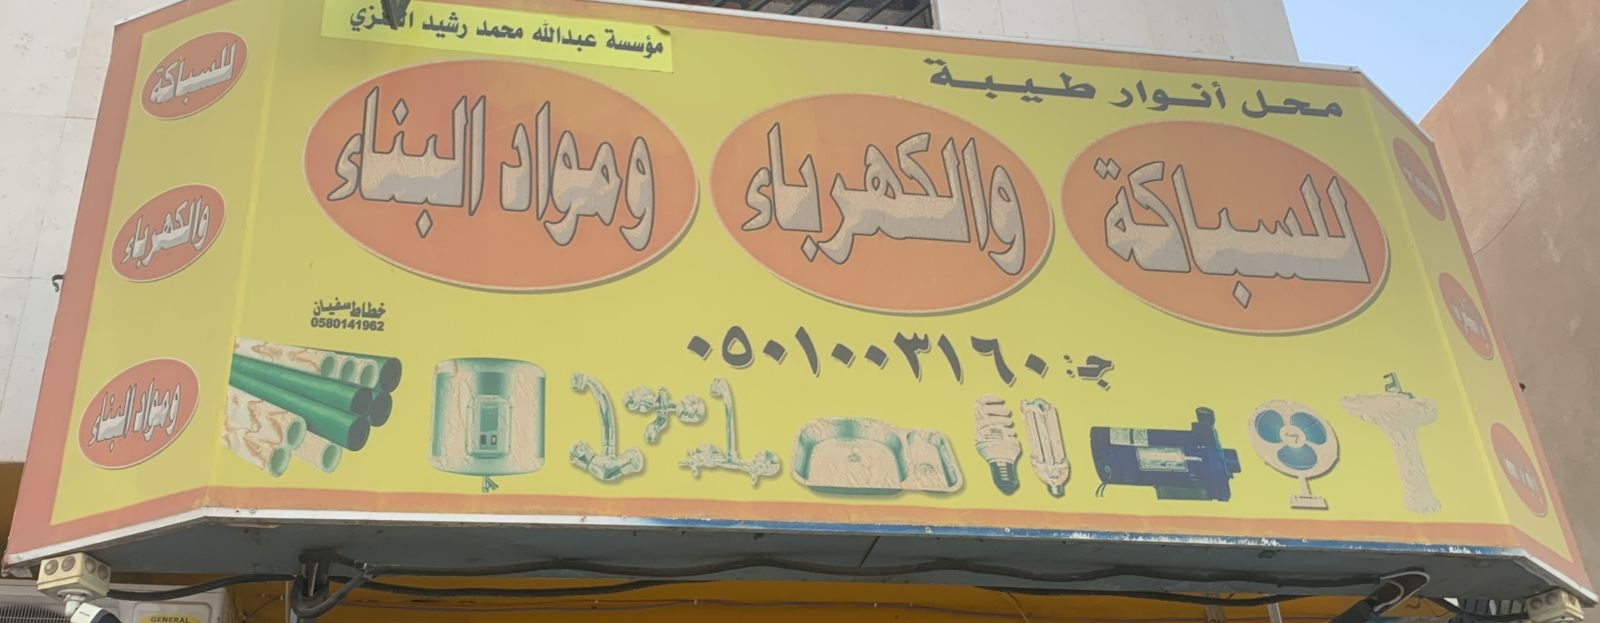 مؤسسة عبدالله محمد رشيد
محل أنوار طيبة
للسباكة والكهرباء ومواد البناء
ج: ٠٥٠١٠٠٣١٦٠
خطاط سفيان
0580141962
للسباكة
والكهرباء
ومواد البناء
GENERAL